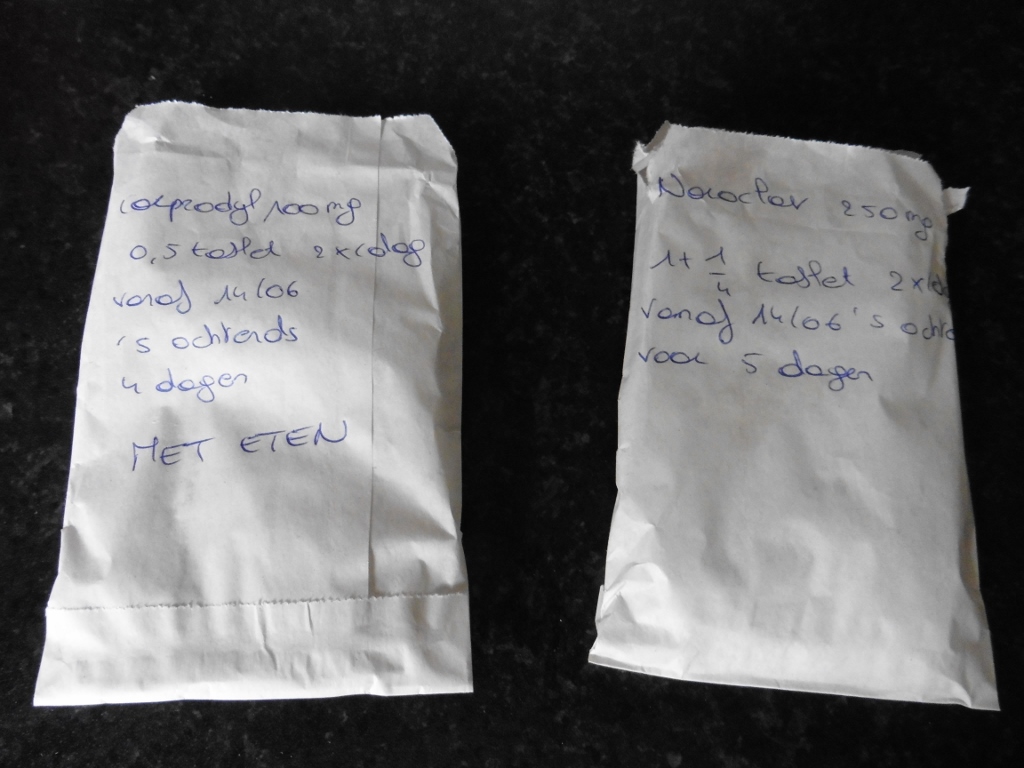 carprodyl 100mg
0,5 tablet 2x/dag
vanaf 14/06
's ochtends
4 dagen
MET ETEN
Noroclav 250mg
1+ 1/4 tablet 2x/da
vanaf 14/06 's ochte
voor 5 dagen